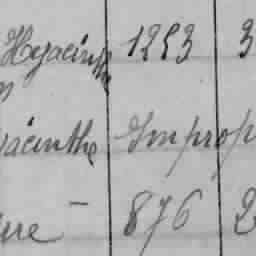 Hyacinthe 1253 3
yacinthe Improp
ure - 876 2